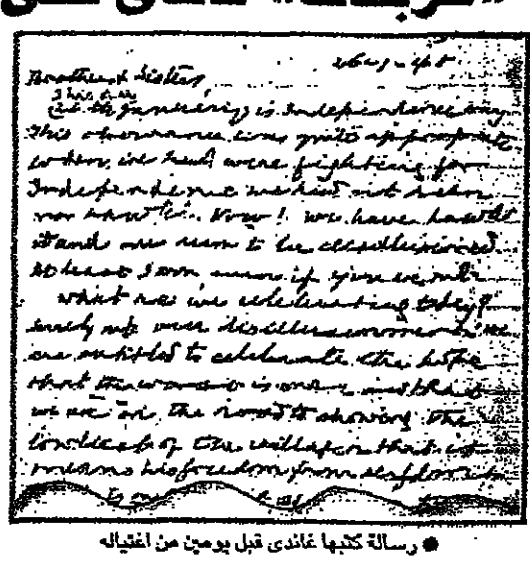 26-1-48
Brothers & Sisters,
This day
26th January, is Independence day
This observance was quite appropriate
when we had were fighting for
Independence we had not seen
nor handled. Now! We have handled
it and we seem to be disillusioned.
At least I am even if you are not.
What are we celebrating today?
surely not our disillusionment. We
are entitled to celebrate the hope
that the worst is over and that
we are on the road to showing the
lowliest of the villager that it
means his freedom from serfdom
● رسالة كتبها غاندى قبل يومين من اغتياله